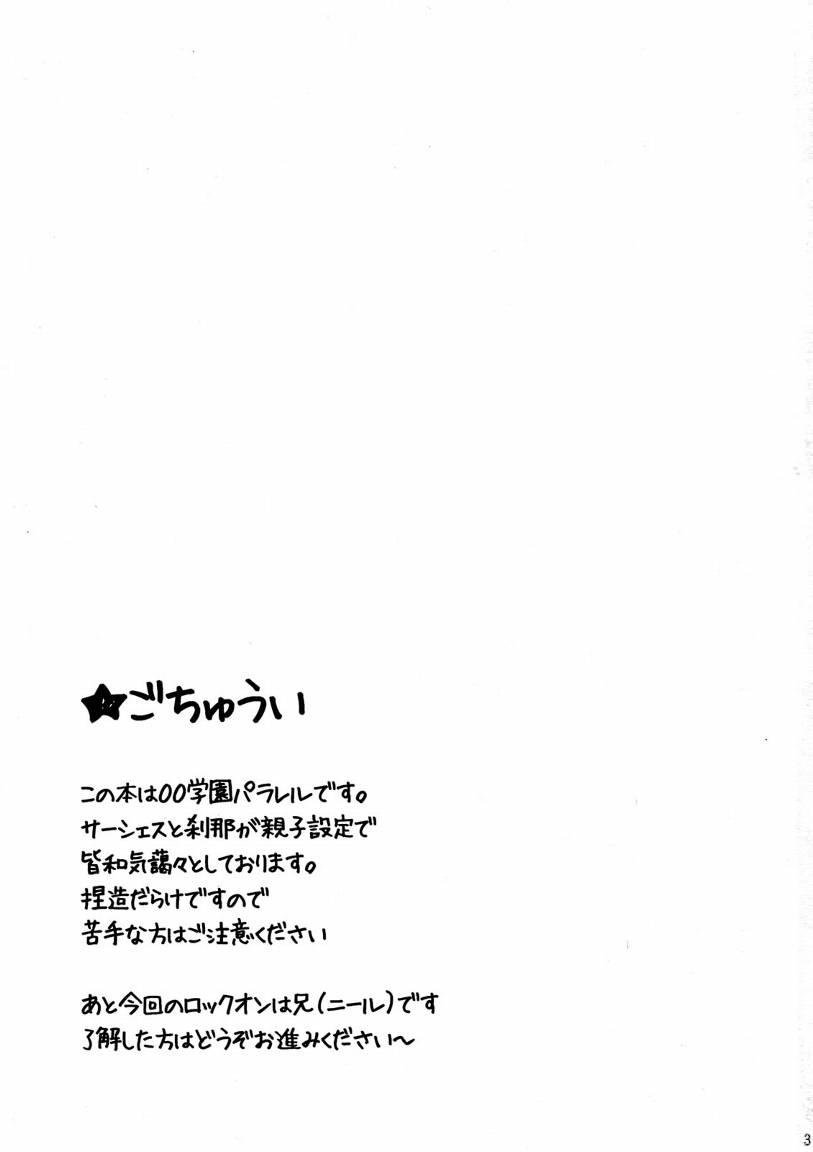 ★ごちゅうい
この本は00学園パラレルです。
サーシェスと刹那が親子設定で
皆和気藹々としております。
捏造だらけですので
苦手な方はご注意ください
あと今回のロックオンは兄(ニール)です
了解した方はどうぞお進みください～
3